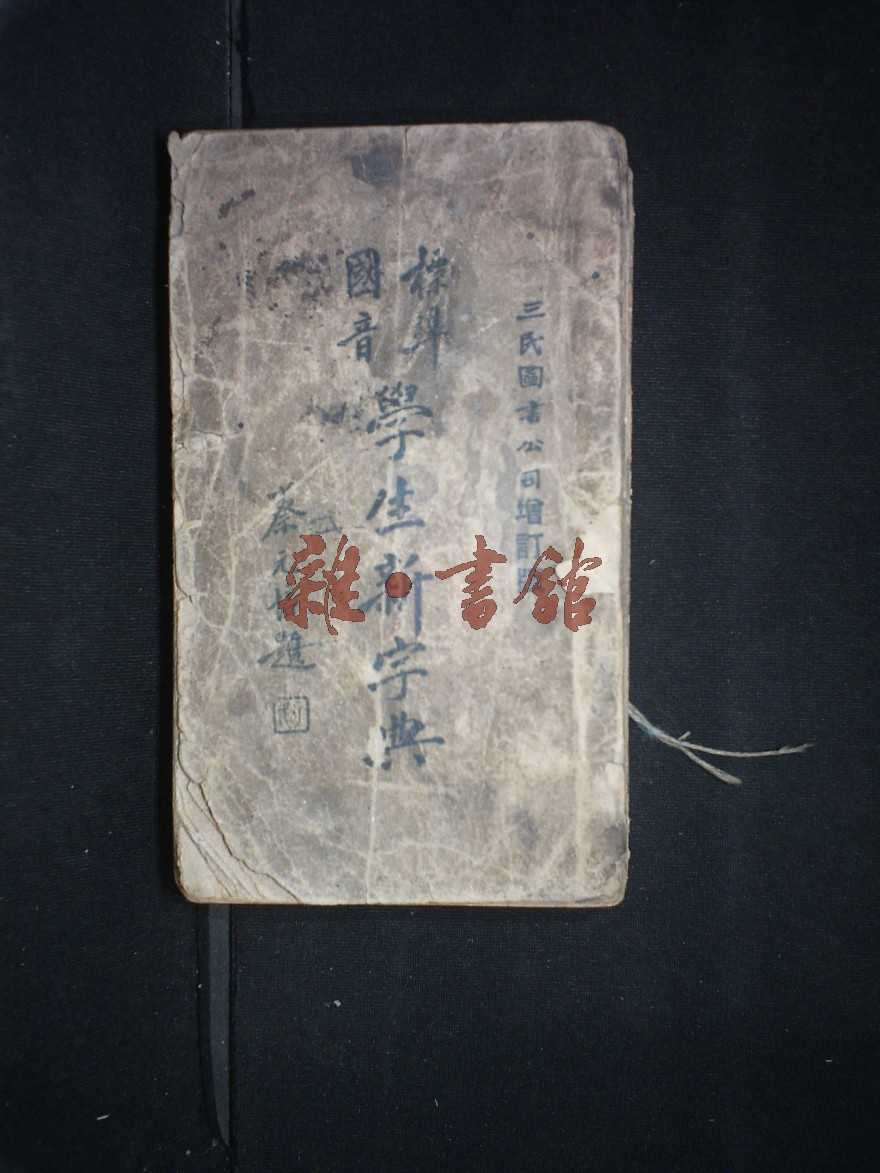 三民圖書公司增訂
標準
國音
學生新字典
蔡元培題
雜·書館